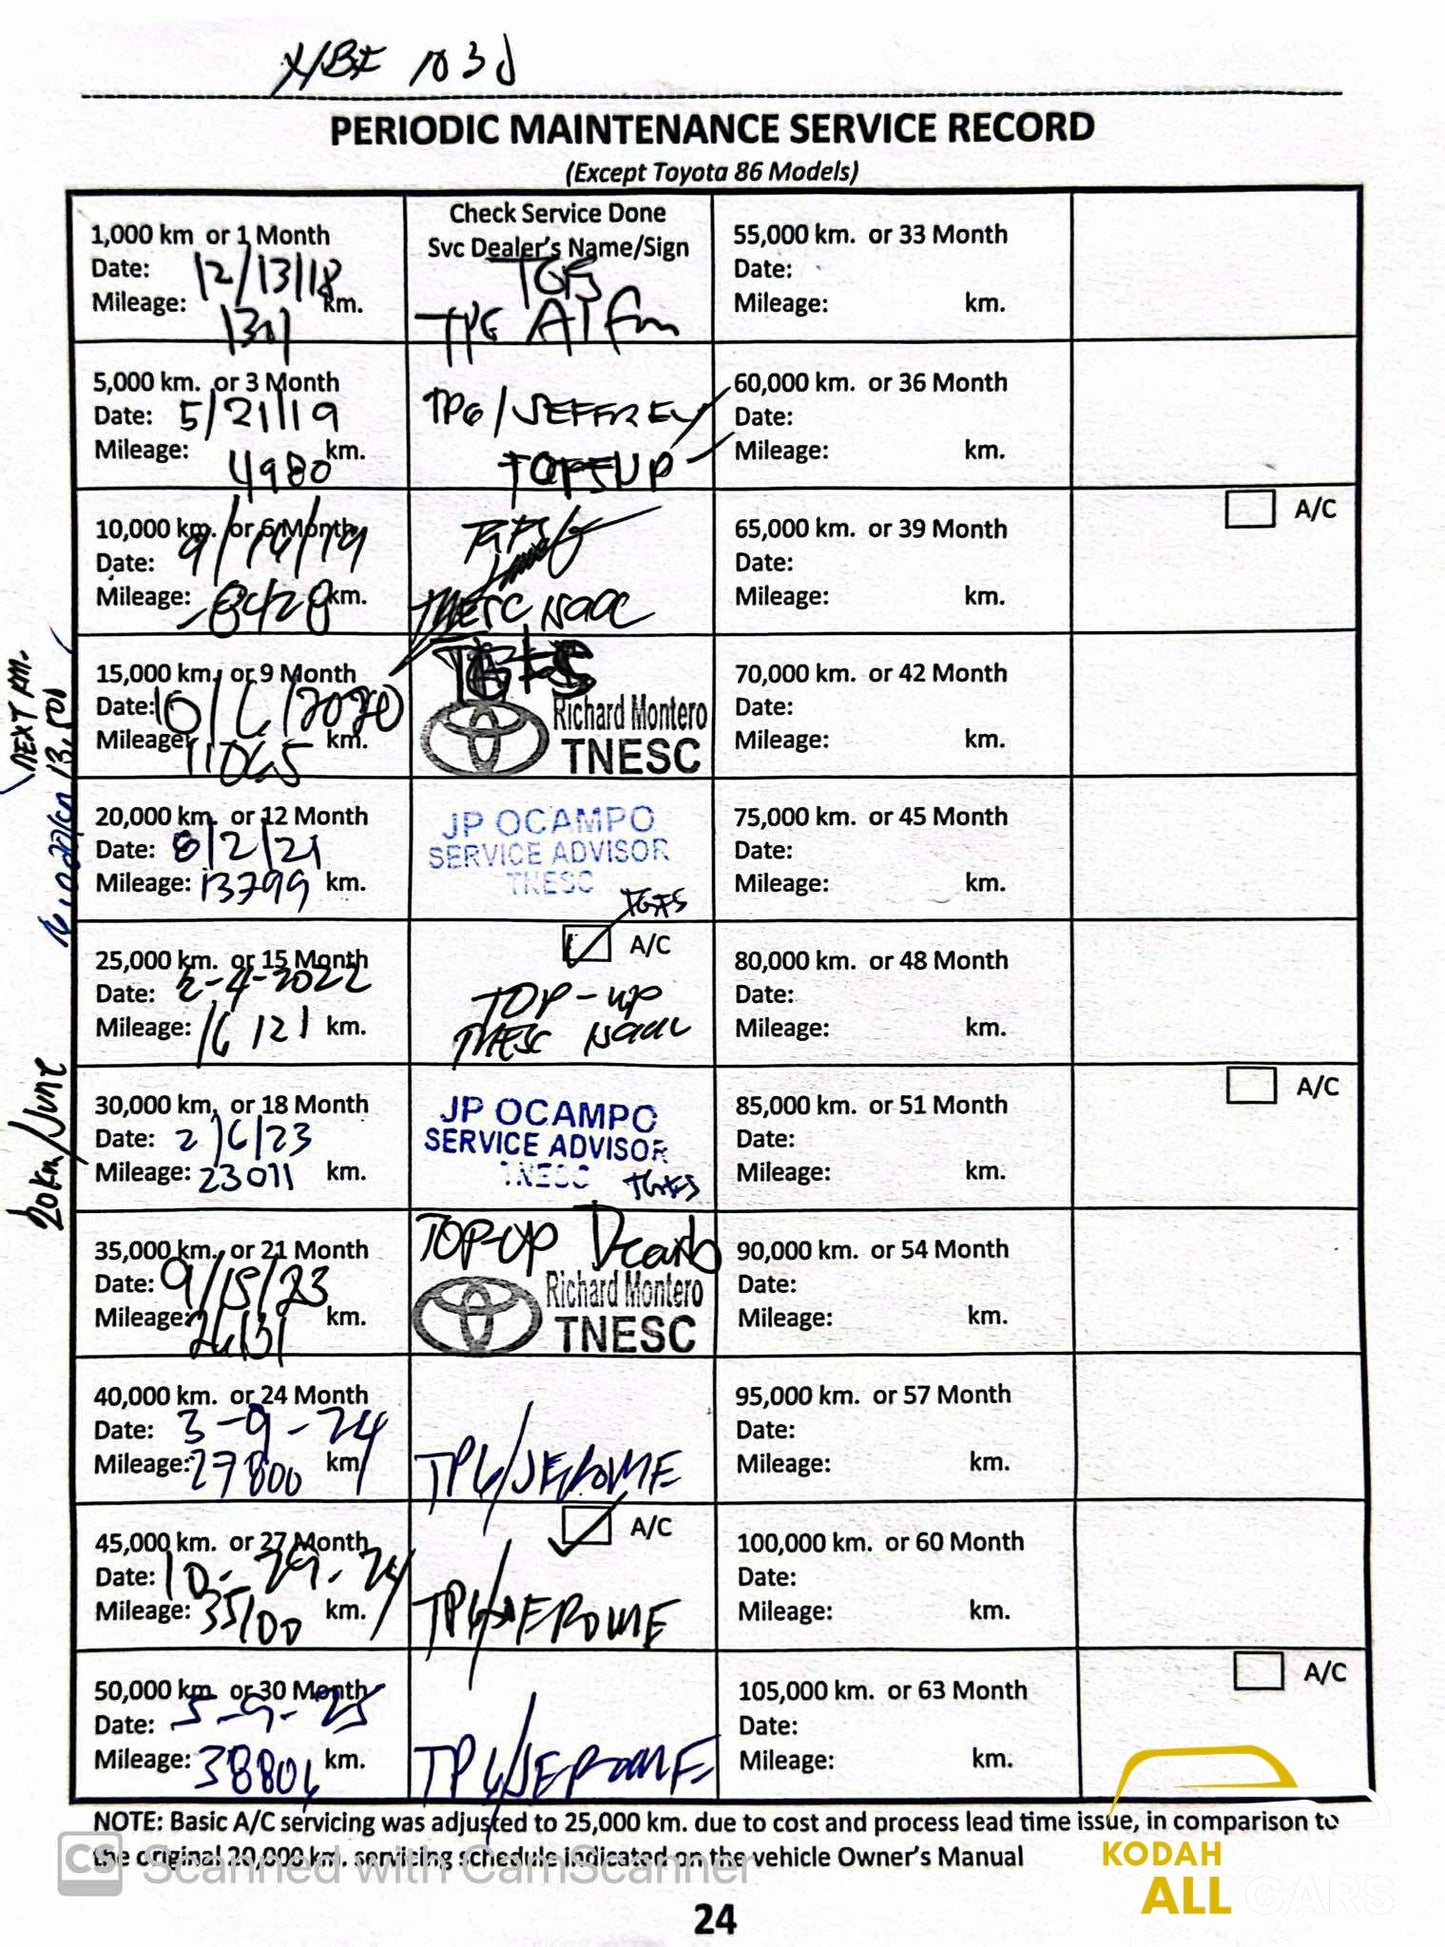 PERIODIC MAINTENANCE SERVICE RECORD
(Except Toyota 86 Models)
1,000 km or 1 Month
Date: 12/13/18
Mileage: 1301 km.
Check Service Done
Svc Dealer's Name/Sign
5,000 km. or 3 Month
Date: 5/21/19
Mileage: 4980 km.
TPG/JEFFREY
TOPS UP
10,000 km. or 6 Month
Date: 9/14/19
Mileage: 8428 km.
TNESC
15,000 km. or 9 Month
Date: 10/6/2020
Mileage: 11065 km.
TGFS
Richard Montero
TNESC
20,000 km. or 12 Month
Date: 8/2/21
Mileage: 13799 km.
JP OCAMPO
SERVICE ADVISOR
TNESC
TGFS
25,000 km. or 15 Month
Date: 2-4-2022
Mileage: 16121 km.
A/C
TOP-UP
TNESC
30,000 km. or 18 Month
Date: 2/6/23
Mileage: 23011 km.
JP OCAMPO
SERVICE ADVISOR
TNESC
TGFS
35,000 km. or 21 Month
Date: 9/15/23
Mileage: km.
TOP-UP Dcarb
Richard Montero
TNESC
40,000 km. or 24 Month
Date: 3-9-24
Mileage: 27800 km
TPG/JEROME
45,000 km. or 27 Month
Date: 10-29-24
Mileage: 35100 km.
A/C
TPG/JEROME
50,000 km or 30 Month
Date: 5-9-25
Mileage: 38806 km.
TPG/JEROME
NEXT PM.
20km/June
55,000 km. or 33 Month
Date:
Mileage: km.
60,000 km. or 36 Month
Date:
Mileage: km.
65,000 km. or 39 Month
Date:
Mileage: km.
A/C
70,000 km. or 42 Month
Date:
Mileage: km.
75,000 km. or 45 Month
Date:
Mileage: km.
80,000 km. or 48 Month
Date:
Mileage: km.
85,000 km. or 51 Month
Date:
Mileage: km.
A/C
90,000 km. or 54 Month
Date:
Mileage: km.
95,000 km. or 57 Month
Date:
Mileage: km.
100,000 km. or 60 Month
Date:
Mileage: km.
105,000 km. or 63 Month
Date:
Mileage: km.
A/C
NOTE: Basic A/C servicing was adjusted to 25,000 km. due to cost and process lead time issue, in comparison to
the original 20,000 km. servicing schedule indicated on the vehicle Owner's Manual
CS Scanned with CamScanner
KODAH
ALL CARS
24